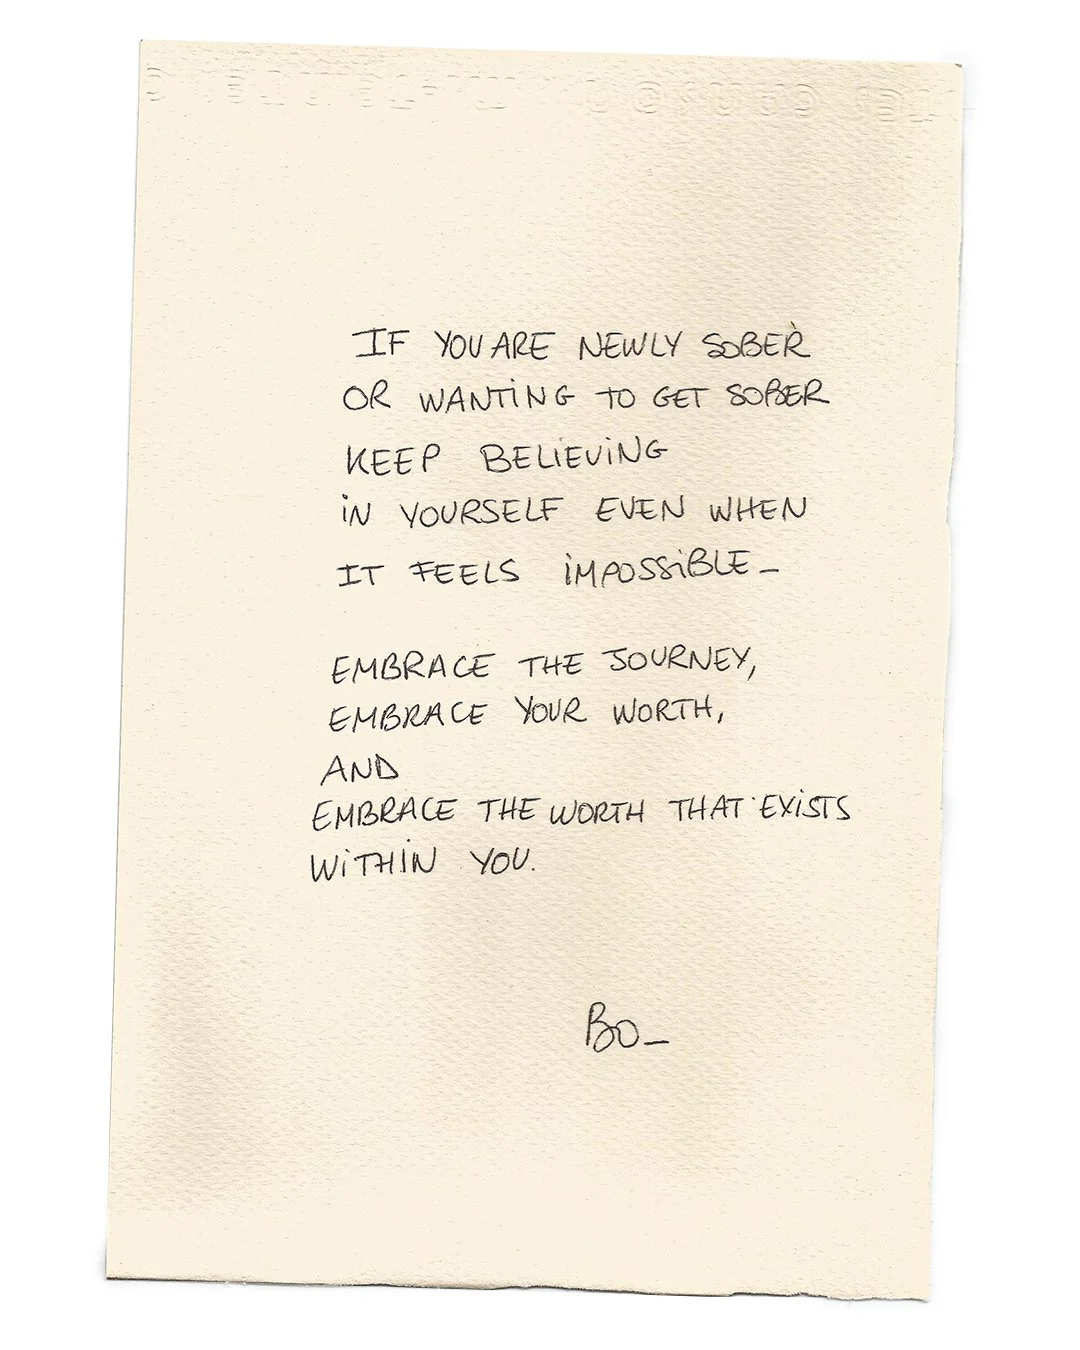 IF YOU ARE NEWLY SOBER
OR WANTING TO GET SOBER
KEEP BELIEVING
IN YOURSELF EVEN WHEN
IT FEELS IMPOSSIBLE_
EMBRACE THE JOURNEY,
EMBRACE YOUR WORTH,
AND
EMBRACE THE WORTH THAT EXISTS
WITHIN YOU.
BO_